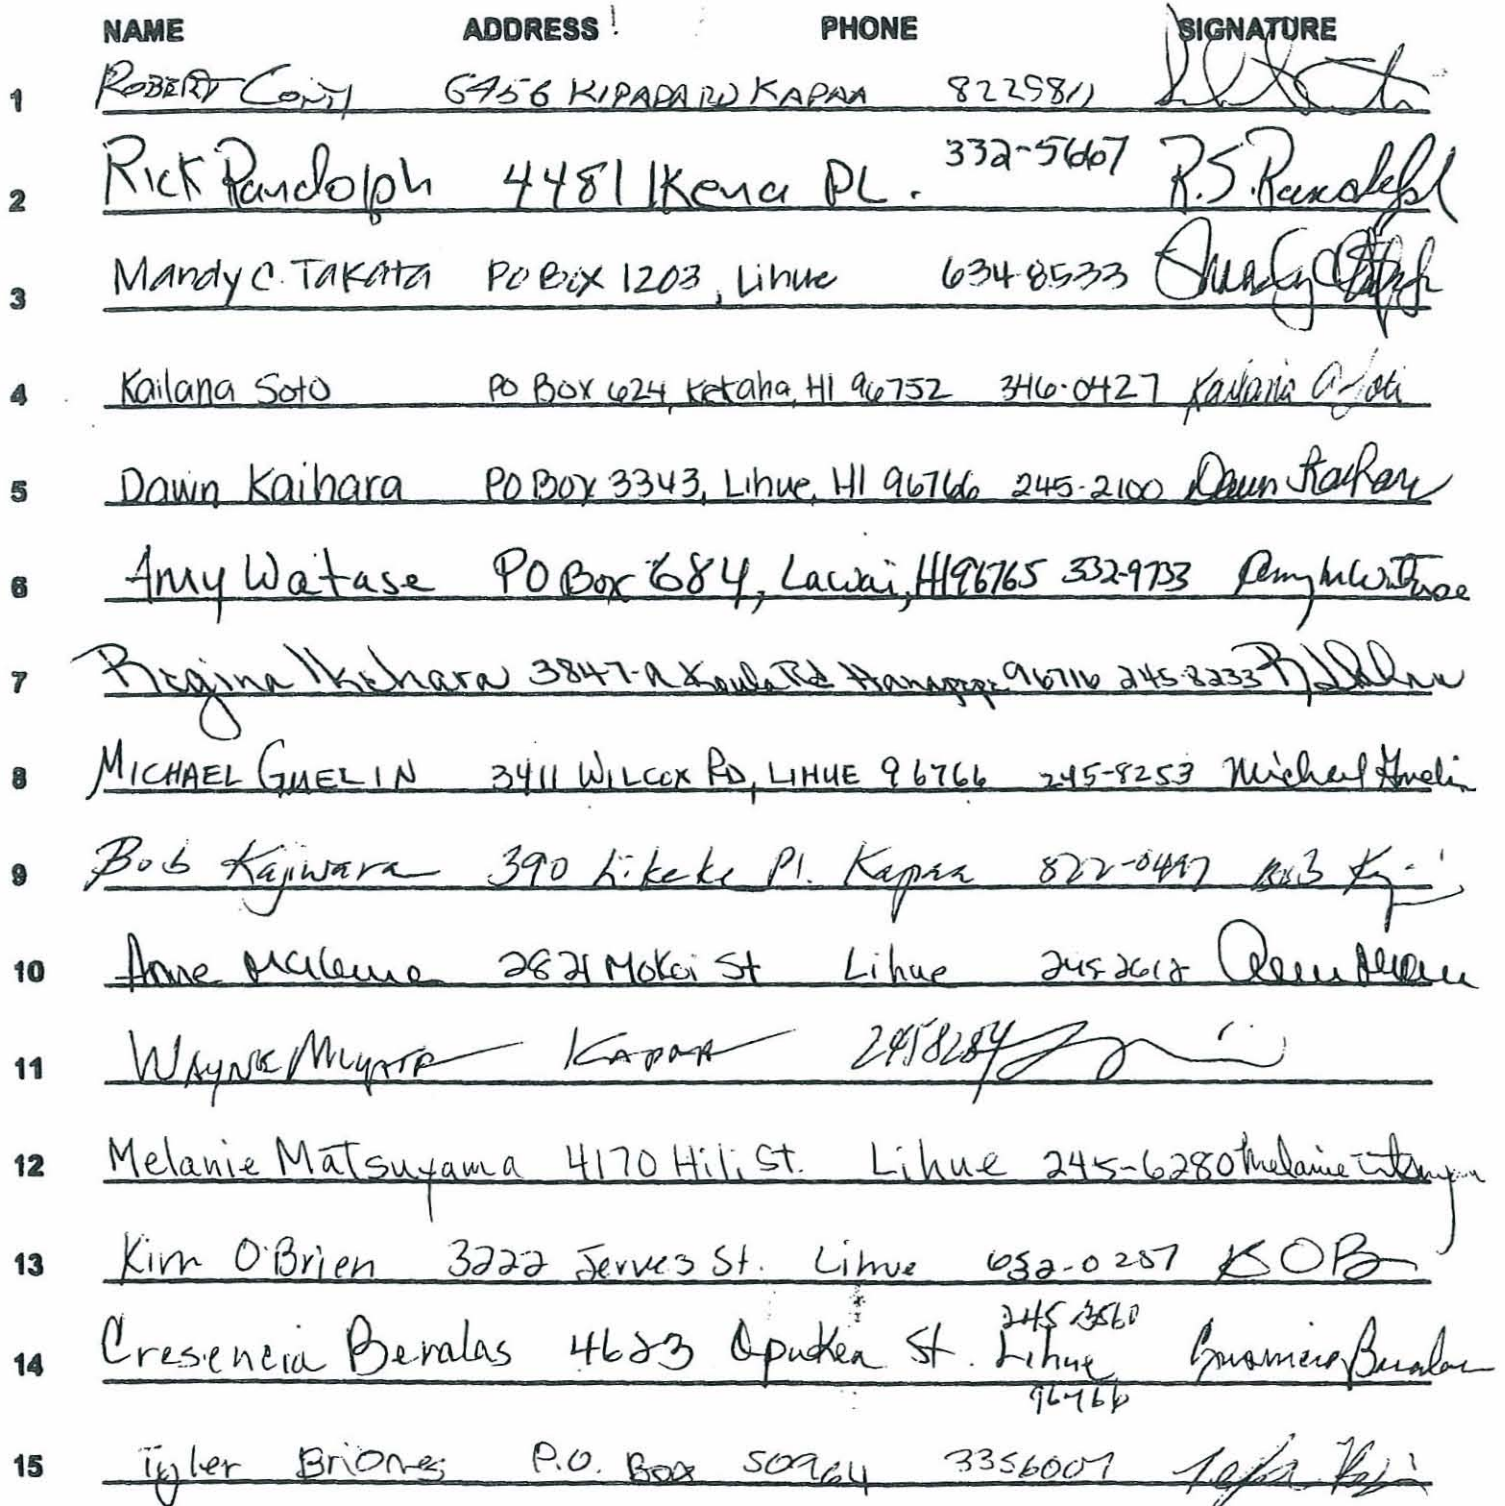 NAME ADDRESS PHONE SIGNATURE
1 ROBERT 6456 KAPAA 8225811
2 Rick Randolph 4481 Ikena PL. 332-5667 R.S. Randolph
3 Mandy C. Takata PO BOX 1203, Lihue 634-8533
4 Kailana Soto PO BOX 624, Kekaha, HI 96752 346-0427 Kailana
5 Dawn Kaihara PO BOX 3343, Lihue, HI 96766 245-2100 Dawn Kaihara
6 Amy Watase PO Box 684, Lawai, HI 96765 332-9733 Amy M Watase
7 Regina Ikehara 3847-A Koula Rd Hanapepe 96716 245-8233
8 MICHAEL GUELIN 3411 WILCOX RD, LIHUE 96766 245-8253 Michael Guelin
9 Bob Kajiwara 390 Likeke Pl. Kapaa 822-0497 Bob
10 Anne 2821 Mokoi St Lihue 245 2612
11 WAYNE MIYATA KAPAA 2458284
12 Melanie Matsuyama 4170 Hili St. Lihue 245-6280 Melanie Matsuyama
13 Kim O'Brien 3222 Jerves St. Lihue 652-0257 KOB
14 Cresencia Beralas 4623 Opukea St. Lihue 96766 245 3560 Cresencia Beralas
15 Tyler Briones P.O. Box 50964 3356007